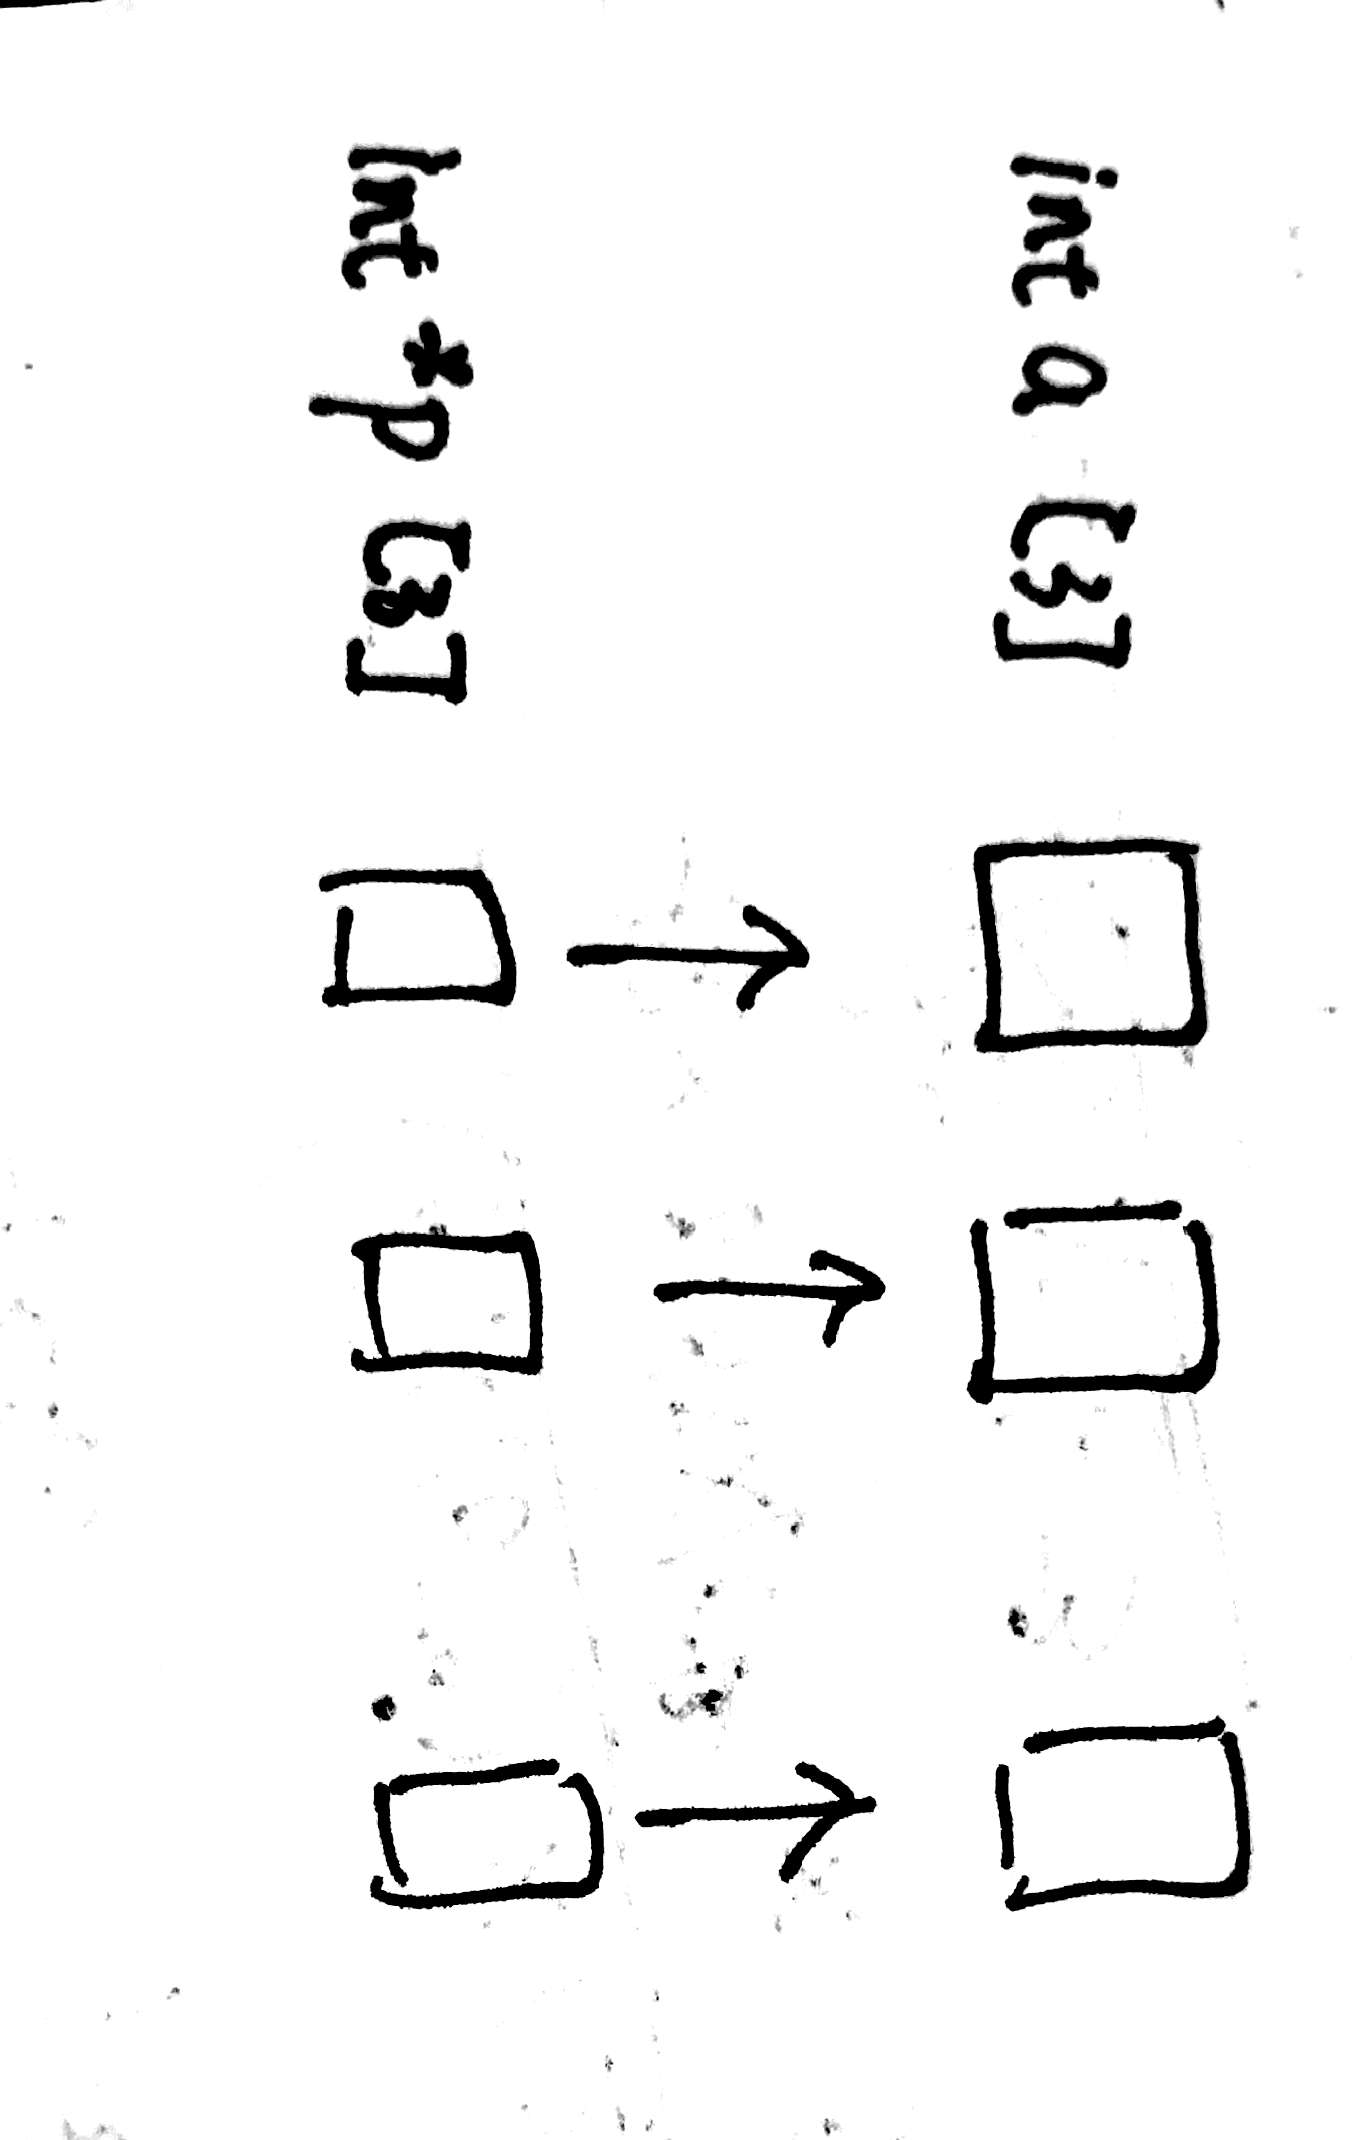 int a [3]
Int *p [3]